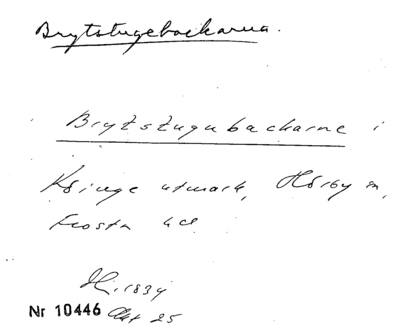 Brytstugebackarna.
Brytstugubackarne i
Köinge utmark, Hörby sn,
Frosta hd
1834
Nr 10446 Akt 25